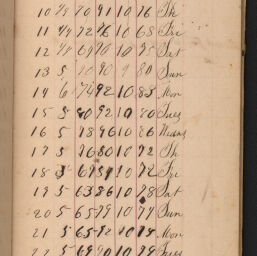 10 70 91 10 76 Th
11 72 76 10 68 Fri
12 10 75 Sat
13 5 90 9 80 Sun
14 6 76 92 10 83 Mon
15 5 80 92 10 80 Tues
16 5 78 96 10 86 Wedns
17 5 76 80 10 72 Th
18 10 72 Fr
19 5 63 86 10 78 Sat
20 5 65 79 10 74 Sun
21 5 65 72 10 78 Mon
22 5 69 70 10 78 Tues